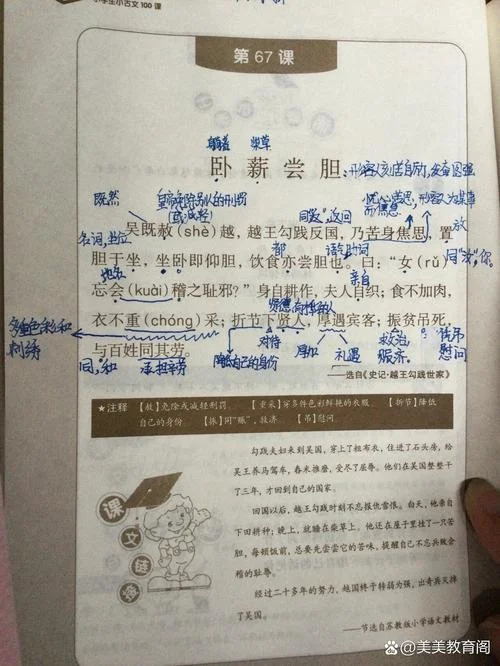 小学生小古文100课
第67课
躺着 柴草
卧薪尝胆
:形容人刻苦自励,发奋图强
既然
皇帝免除别人的刑罚
(或减轻)
同"返",返回
忧心苦思,形容人为某事
而焦思
吴既赦(shè)越,越王勾践反国,乃苦身焦思,置
放
名词,坐位
都
语气助词
同"汝",你
胆于坐,坐卧即仰胆,饮食亦尝胆也。曰:“女(rǔ)
地名
亲自
忘会(kuài)稽之耻邪?”身自耕作,夫人自织;食不加肉,
贤德高尚的人
衣不重(chóng)采;折节下贤人,厚遇宾客;振贫吊死,
多种色彩和
刺绣
对待
救治
凭吊
与百姓同其劳。
降低自己的身份
厚加
礼遇
赈济。
慰问
同,和
承担辛劳
——选自《史记·越王勾践世家》
★注释 【赦】免除或减轻刑罚。 【重采】穿多件色彩鲜艳的衣服。 【折节】降低
自己的身份 【振】同“赈”,救济。 【吊】慰问
课文链接
勾践夫妇来到吴国,穿上了粗布衣,住进了石头房,给
吴王养马驾车,舂米推磨,受尽了屈辱。他们在吴国整整干
了三年,才回到自己的国家。
回国以后,越王勾践时刻不忘报仇雪恨。白天,他亲自
下田耕种;晚上,就睡在柴草上。他还在屋里挂了一只苦
胆,每顿饭前,总要先尝尝它的苦味,提醒自己不忘兵败会
稽的耻辱。
经过二十多年的努力,越国终于转弱为强,出奇兵灭掉
了吴国。
——节选自苏教版小学语文教材
@美美教育阁